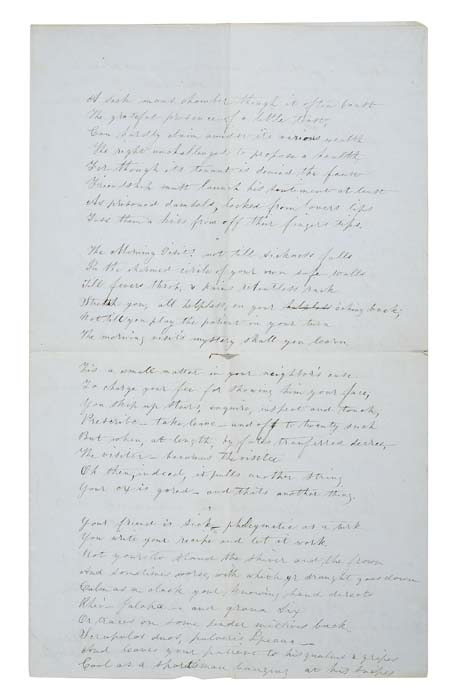 A sick mans chamber though it often boast
The grateful presence of a little toast,
Can hardly claim amidst its various wealth
The right unchallenged to propose a health
For though its tenant is denied the feast
Friendship must launch his sentiment at least
As prisoned damsels, locked from lovers lips
Toss them a kiss from off their fingers tips,
The Morning Visit! not till sickness falls
In the charmed circle of your own safe walls
Till fevers throb, & pains relentless rack
Stretch you, all helpless, on your aching back;
Not till you play the patient in your turn
The morning visit's mystery shall you learn
Tis a small matter in your neighbor's case
To charge your fee for showing him your face,
You skip up stairs, enquire, inspect and touch,
Prescribe - take leave - and off to twenty such
But when, at length, by fates transferred decree,
The visitor - becomes the visitee
Oh then, indeed, it pulls another string
Your ox is gored - and thats another thing
Your friend is sick - phlegmatic as a turk
You write your recipe and let it work
Not yours to stand the shiver and the frown
And sometimes worse, with which yr draught goes down
Calm as a clock your knowing hand directs
Rhei - Jalapæ - ana grana Six
Or traces on some tender missives back
Scrupulos duos, pulveris Ipecac -
And leaves your patient to his qualms & gripes
Cool as a sportsman banging at his snipes